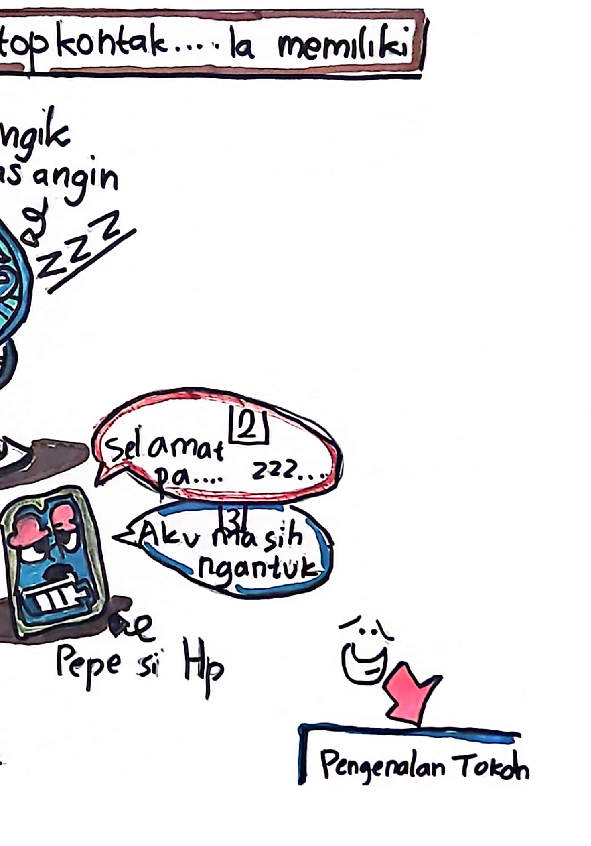 topkontak.... Ia memiliki
ngik
as angin
zzz
2
Selamat
pa.... zzz...
3
Aku masih
ngantuk
Pepe si Hp
Pengenalan Tokoh